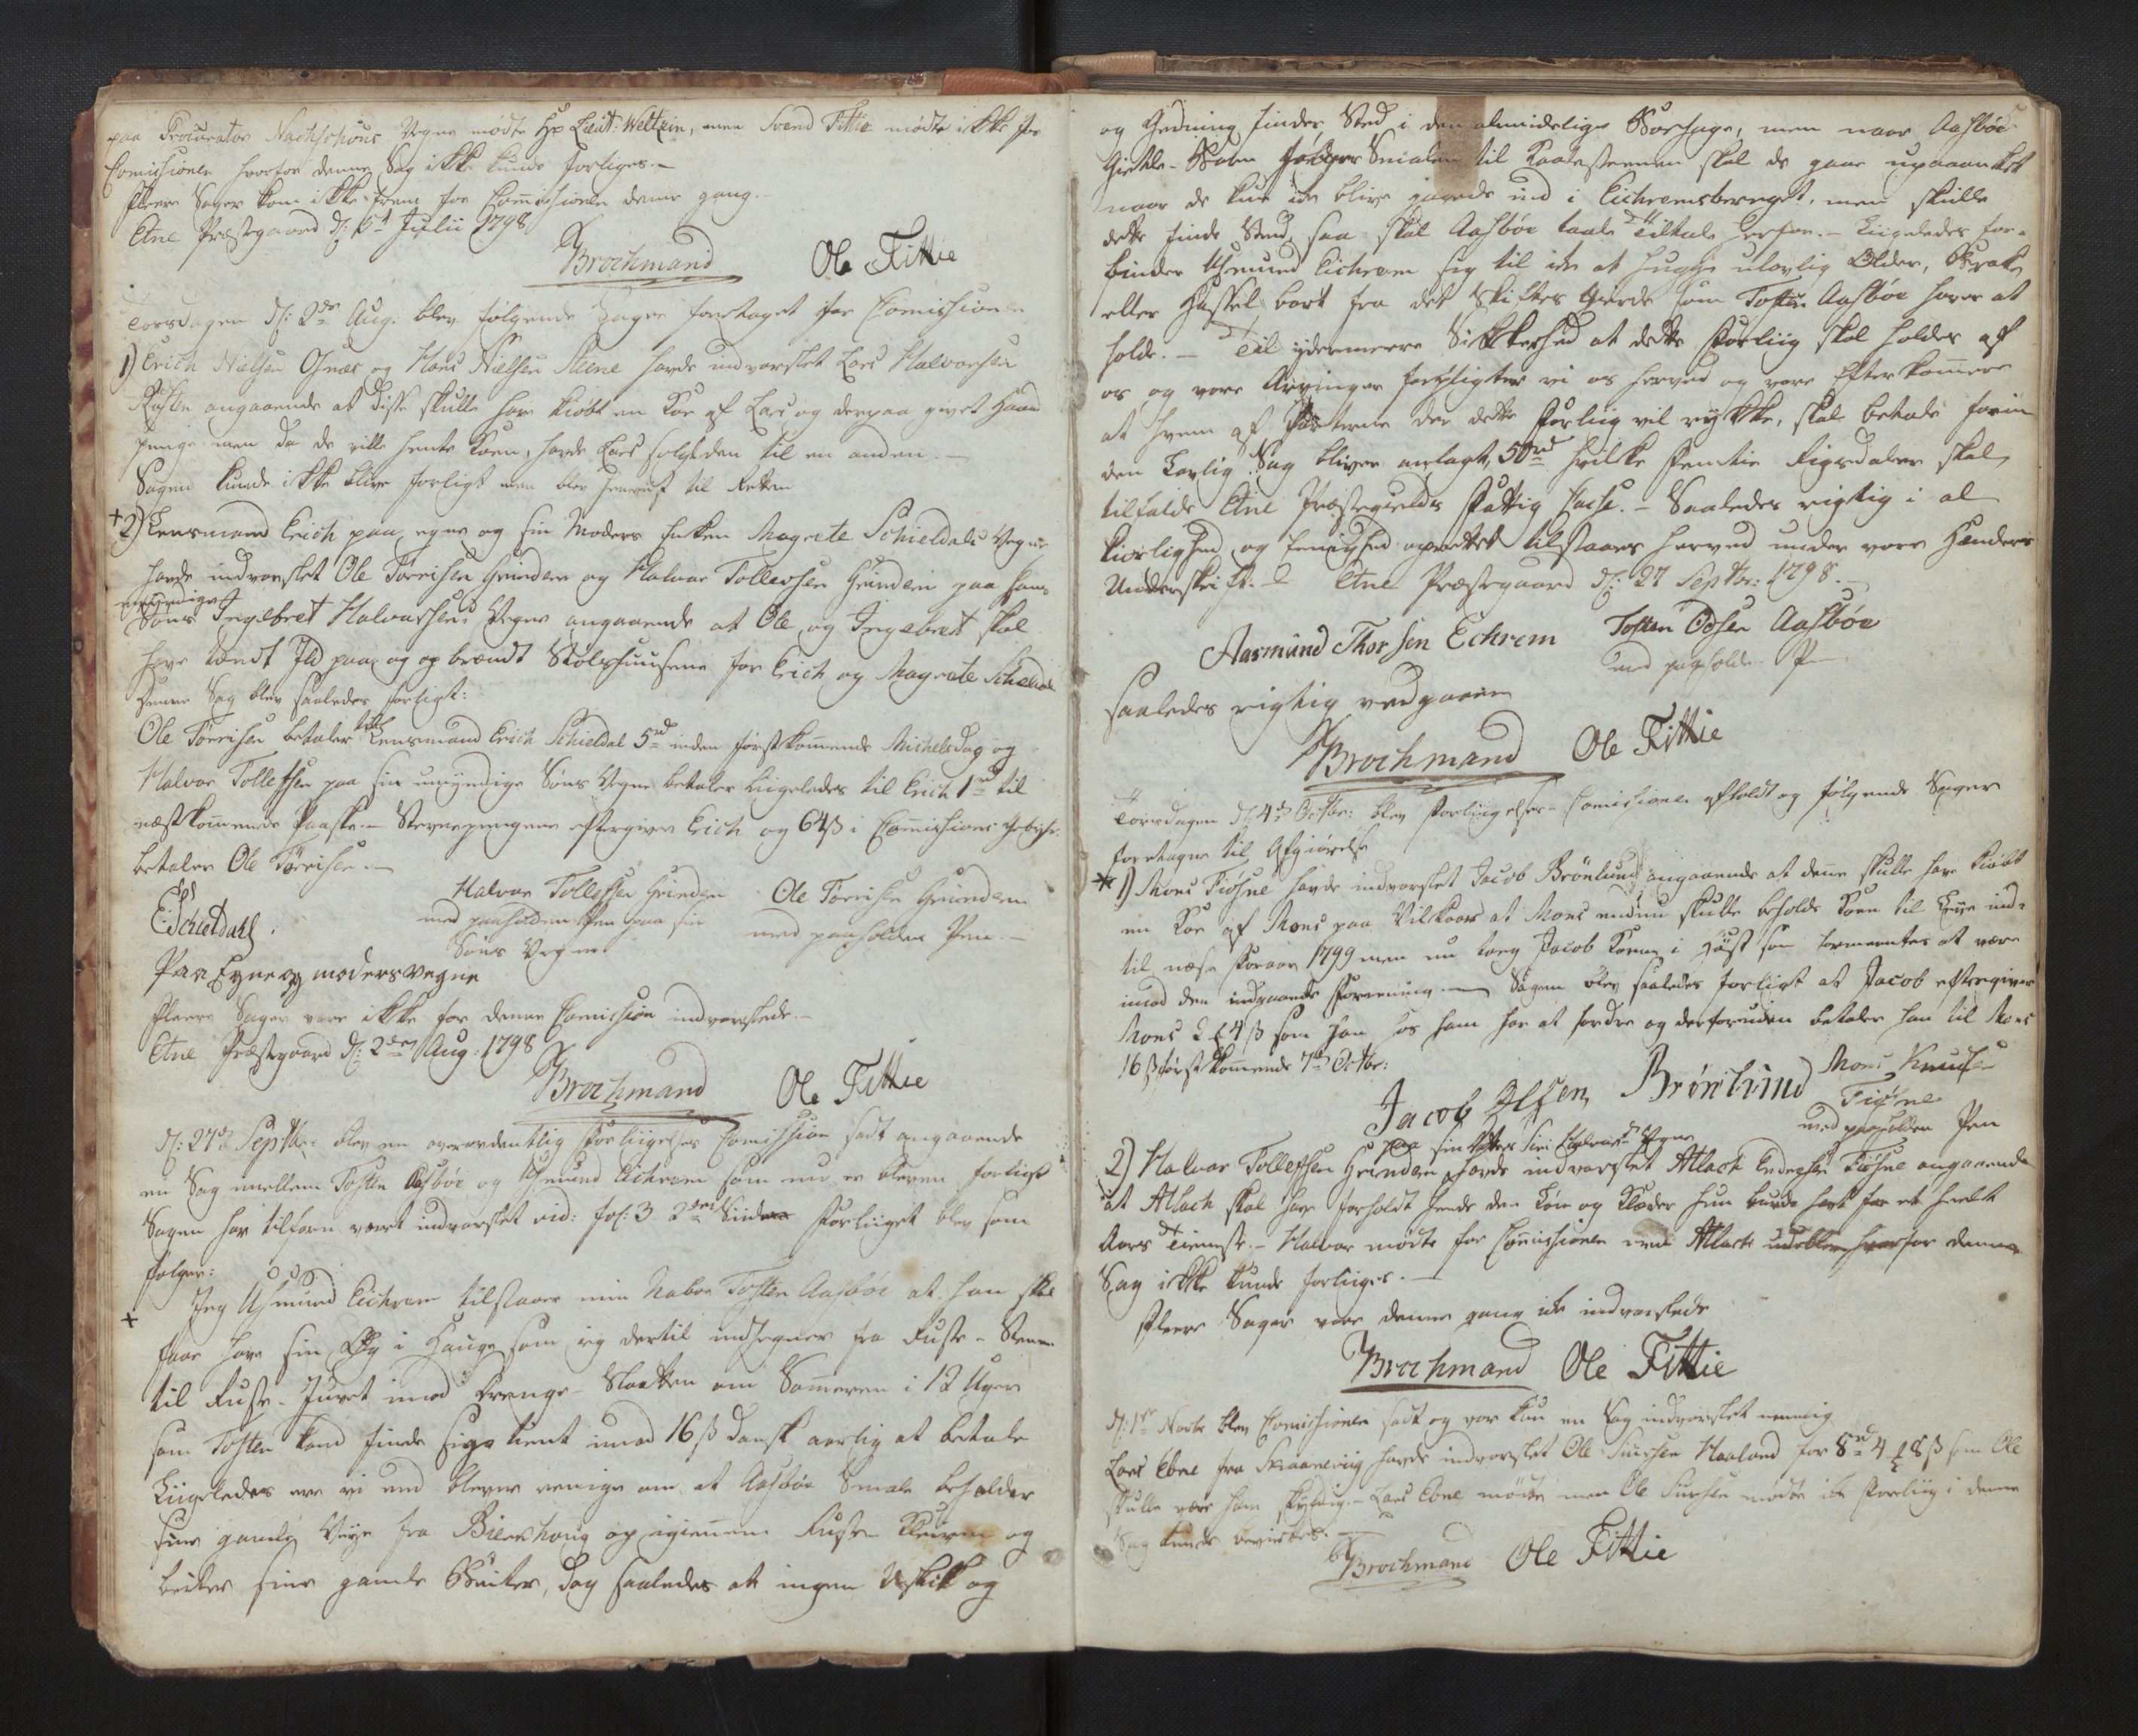 paa Procurator Nachschous Vegne mødte Hr Lieut: Weltzin, men Svend Fittie mødte ikke for
Comissionen hvorfor denne Sag ikke kunde forliges.-
Fleere Sager kom ikke frem for Comissionen denne gang.
Etne Præstegaard d: Julii 1798
Brochmand Ole Fittie
Torsdagen d: 2de Aug: blev følgende Sager foretaget for Comissionen
1) Erich Nielsen Øsnæs og Hans Nielsen Steene havde indvarslet Lars Halvorsen
angaaende at disse skulle have kiøbt en Koe af Lars og derpaa givet Haand
penge men da de ville hente Koen, havde Lars solgt den til en anden.-
Sagen kunde ikke blive forligt men blev henviist til Retten
+ 2) Lensmand Erich paa egne og sin Moders Enken Magrete Schieldals Vegne
havde indvarslet Ole Tørrisen Grinden og Halvor Tollevsen Grinden paa hans
umyndige
Søns Ingebret Halvorsens Vegne angaaende at Ole og Ingebret skal
have tændt Ild paa og opbrændt Stolshuusene for Erich og Magrete Schieldal
Denne Sag blev saaledes forligt:
Ole Tørrisen betaler til Lensmand Erich Schieldal 5rd inden førstkommende Michelsdag og
Halvor Tollefsen paa sin umyndige Søns Vegne betaler liigeledes til Erich 1rd til
næstkommende Paaske.- Stevnepengene eftergiver Erich og 64ß i Comissions Gebyhr
betaler Ole Tørrisen.-
E: Schieldahl Halvor Tollefsen Grinden Ole Tørrisen Grinden
med paaholden Pen paa sin med paaholden Pen.-
Søns Vegne
Paa Egne og moders vegne
Fleere Sager vare ikke for denne Comission indvarslede.-
Etne Præstegaard d: 2den Aug: 1798
Brochmand Ole Fittie
d: 27de Septbr: blev en overordentlig Forliigelses Comission sadt angaaende
en Sag imellem Tosten Aasbøe og Asmund Eichrem som nu er bleven forligt
Sagen har tilforn været indvarslet vid: fol: 3 2den Siide Forliiget blev som
følger:
+ Jeg Asmund Eichrem tilstaaer min Naboe Tosten Aasbøe at han skal
faae have sin i Hauge som jeg dertil indhegner fra Ruste-Steene
til Ruste-Juvet imod Drenge-Slaatten om Sommeren i 12 Uger
som Tosten kand finde sigg tient imod 16ß dansk aarlig at betale
Liigeledes ere vi end blevne eenige om at Aasbøe Smale beholder
sine gamle Veye fra Biershoug op igiennem Ruste Kleiven og
beiter sine gamle Beiter, dog saaledes at ingen Uskik og
og Gedning finder Sted i den almindelige Borhage, men naar Aasbøe
Smalen til Kaalesteenen skal de gaae upaaanket
naar de kun icke blive jagede ind i Eichremsberget, men skulle
dette finde Sted saa skal Aasbøe taale Tiltale herfor.- Liigeledes for-
binder Asmund Eichrem sig til icke at hugge ulovlig Older, Brake
eller Hassel bort fra det Skiftes Gierde som Tosten Aasbøe haver at
holde.- Til ydermeere Sikkerhed at dette Forliig skal holdes af
os og vore Arvinger forpligter vi os herved og vore Efterkommere
at hvem af Parterne der dette Forliig vil rykke, skal betale forin
den Lovlig Sag bliver anlagt, 50rd hvilke Femtie Rigsdaler skal
tilfalde Etne Præstegields Fattig Casse.- Saaledes rigtig i al
kiærlighed og Eenighed oprettet tilstaaes herved under vore Hænders
Underskrift.- Etne Præstegaard d: 27 Septbr: 1798.-
Aasmund Thorsen Echrem Tosten Odsen Aasbøe
med paaholden P-
saaledes rigtig vedgaaen
Brochmand Ole Fittie
Torsdagen d: 4de Octbr: blev Forliigelses-Comissionen afholdt og følgende Sager
foretagne til Afgiørelse
* 1) Mons Fiøsne havde indvarslet Jacob Brönlund angaaende at denne skulle have kiøbt
en Koe af Mons paa Vilkaar at Mons endnu skulle beholde Koen til Leye ind-
til næste Foraar 1799 men nu tog Jacob Koen i Høst som formentes at være
imod den indgaaede Foreening.- Sagen blev saaledes forligt at Jacob eftergiver
Mons 2 ₤ 4 ß som han hos ham har at fordre og desforuden betaler han til Mons
16 ß førstkommende 7de Octbr:
Jacob Olsen Brönlund Mons Knuds-
Fiøsne
med paaholden Pen
paa sin Datter Siri Vegne
2) Halvor Tollefsen Grinden havde indvarslet Atlach Endresen Fiøsne angaaende
at Atlach skal have forholdt hende den Løn og Klæder hun burde havt for et heelt
Aars Tieneste.- Halvor mødte for Comissionen men Atlach udeblev hvorfor denne
Sag ikke kunde forliiges.-
Fleere Sager vare denne gang icke indvarslede
Brochmand Ole Fittie
d: 1ste Novbr blev Comissionen sadt og var kun en Sag indvarslet nemlig
Lars Ebne fra Skaanevig havde indvarslet Ole Siursen Haaland for 8rd 4 ₤ 8ß som Ole
skulle være ham skyldig.- Lars Ebne mødte men Ole Siursen mødte icke Forliig i denne
Sag kunde
Brochmand Ole Fittie